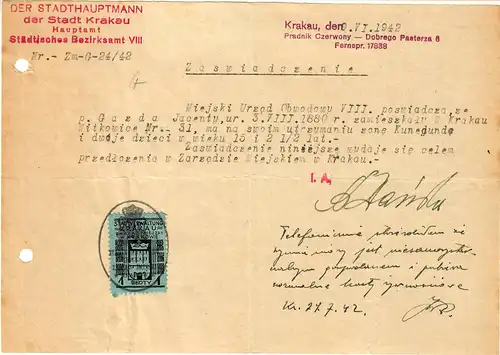 DER STADTHAUPTMANN
der Stadt Krakau
Hauptamt
Städtisches Bezirksamt VIII
Nr.- Zm-G-24/42
Krakau, den 9.VI.1942
Prądnik Czerwony — Dobrego Pasterza 6
Fernspr. 17838
Zaświadczenie
Miejski Urząd Obwodowy VIII. poświadcza, że
p. Gazda Jacenty, ur. 3.VIII.1880 r. zamieszkały w Krakau
Witkowice Nr.- 31, ma na swoim utrzymaniu żonę Kunegundę
i dwoje dzieci w wieku 15 i 2 1/2 lat.-
Zaświadczenie niniejsze wydaje się celem
przedłożenia w Zarządzie Miejskiem w Krakau.-
I. A.
Telefonicznie stwierdziłem że
jest
i pobiera
normalne karty żywnościowe
Kr. 27.7.42
1 1
ZŁOTY